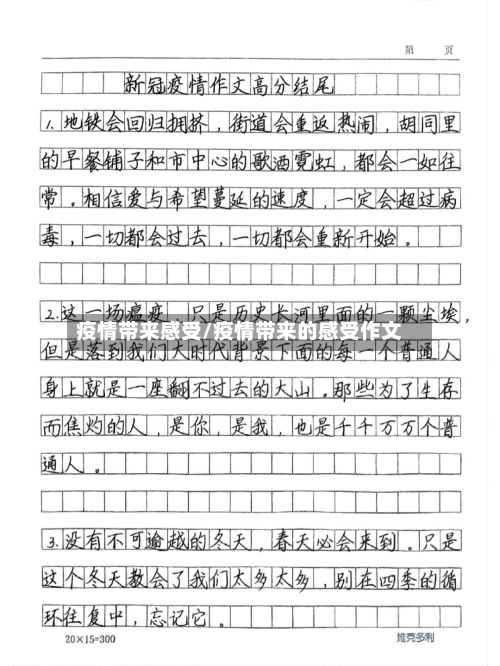 第 页
新冠疫情作文高分结尾
1.地铁会回归拥挤，街道会重返热闹，胡同里
的早餐铺子和市中心的歌酒霓虹，都会一如往
常。相信爱与希望蔓延的速度，一定会超过病
毒，一切都会过去，一切都会重新开始。
2.这一场瘟疫，只是历史长河里面的一颗尘埃，
疫情带来感受/疫情带来的感受作文
但是落到我们大时代背景下面的每一个普通人
身上就是一座翻不过去的大山。那些为了生存
而焦灼的人，是你，是我，也是千千万万个普
通人。
3.没有不可逾越的冬天，春天必会来到。只是
这个冬天教会了我们太多太多，别在四季的循
环往复中，忘记它。
20×15=300 维克多利